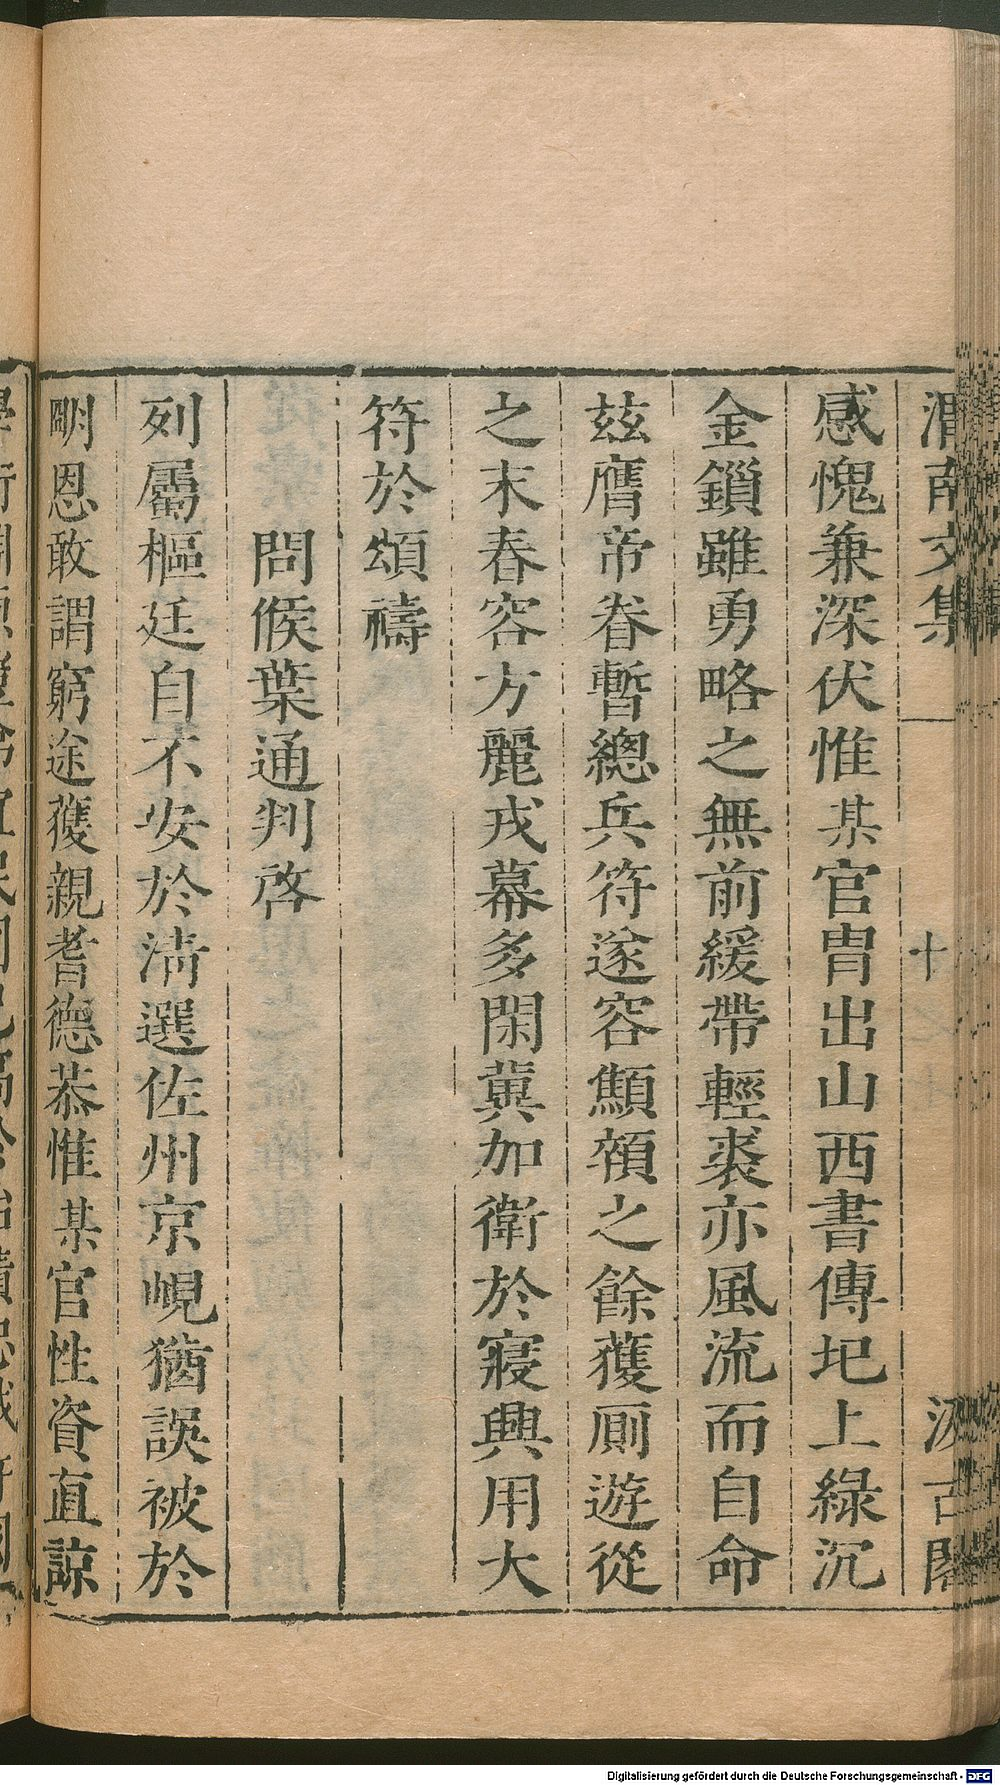 渭南文集 十 汲古閣
感愧兼深伏惟某官胄出山西書傳圯上綠沉
金鎖雖勇略之無前緩帶輕裘亦風流而自命
茲膺帝眷暫總兵符遂容顦顇之餘獲厠遊從
之末春容方麗戎幕多閑冀加衛於寢興用大
符於頌禱
問候葉通判啓
列屬樞廷自不安於清選佐州京峴猶誤被於
明恩敢謂窮途獲親耆德恭惟某官性資直諒
Digitalisierung gefördert durch die Deutsche Forschungsgemeinschaft - DFG